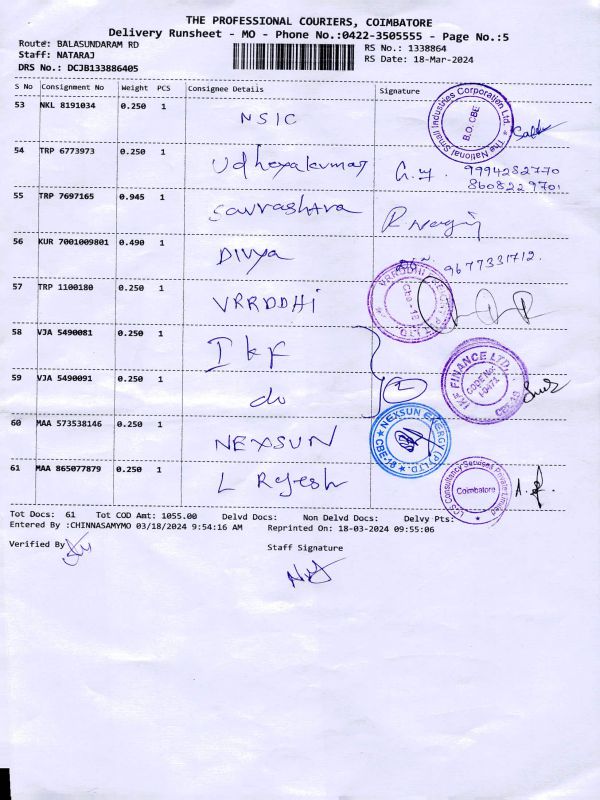 THE PROFESSIONAL COURIERS, COIMBATORE
Delivery Runsheet - MO - Phone No.:0422-3505555 - Page No.:5
Route: BALASUNDARAM RD
RS No.: 1338864
Staff: NATARAJ
RS Date: 18-Mar-2024
DRS No.: DCJB133886405
S No Consignment No Weight PCS Consignee Details Signature
53 NKL 8191034 0.250 1 NSIC
The National Small Industries Corporation Ltd. B.O. CBE
54 TRP 6773973 0.250 1 Udhayakumar 9994282770
8608229701
55 TRP 7697165 0.945 1 Saurashtra
56 KUR 7001009801 0.490 1 Divya 9677331712.
57 TRP 1100180 0.250 1 VRRDDHI
58 VJA 5490081 0.250 1 IKF
IKF FINANCE LTD. CODE No:
59 VJA 5490091 0.250 1 do 2
60 MAA 573538146 0.250 1 NEXSUN
NEXSUN ENERGY (P) LTD. CBE-18
61 MAA 865077879 0.250 1 L Rajesh
LCS Consultancy Services Private Limited Coimbatore
Tot Docs: 61 Tot COD Amt: 1055.00 Delvd Docs: Non Delvd Docs: Delvy Pts:
Entered By :CHINNASAMYMO 03/18/2024 9:54:16 AM Reprinted On: 18-03-2024 09:55:06
Verified By
Staff Signature